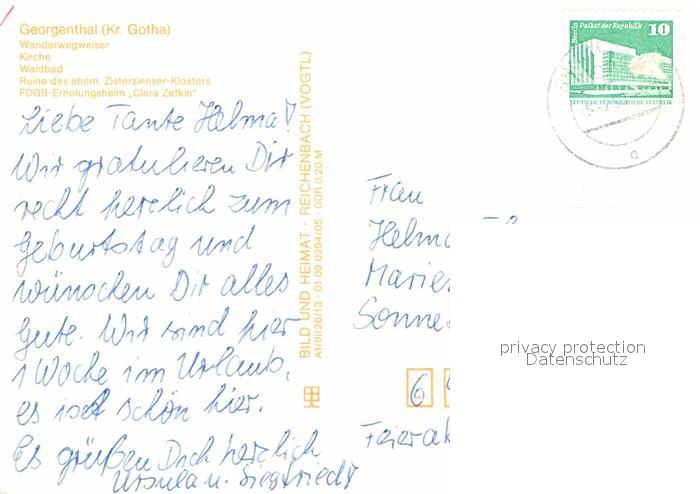 Georgenthal (Kr. Gotha)
Wanderwegweiser
Kirche
Waldbad
Ruine des ehem. Zisterzienser-Klosters
FDGB-Erholungsheim „Clara Zetkin"
Liebe Tante Helma!
Wir gratulieren Dir
recht herzlich zum
Geburtstag und
wünschen Dir alles
Gute. Wir sind hier
1 Woche im Urlaub,
es ist schön hier.
Es grüßen Dich herzlich
Ursula u. Siegfried
BILD UND HEIMAT · REICHENBACH (VOGTL)
A1/III/26/13 · 01 09 0294/05 · DDR 0,20 M
Berlin Palast der Republik
10
DEUTSCHE DEMOKRATISCHE REPUBLIK
Frau
Helma
Marie
Sonne
6
Feiera
privacy protection
Datenschutz